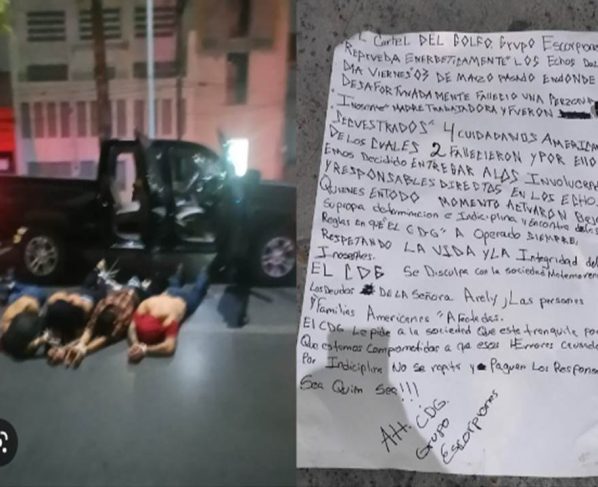 EL Cartel DEL GOLFO. Grupo Escorpiones
REPRUEBA ENERGETICAMENTE" LOS Echos Del
DIA VIERNES" 03 DE MARZO PASADO EN DONDE
DESAFORTUNADAMENTE FALLECIO UNA PERZONA
"Inosente" MADRE TRABAJADORA Y FUERON
SECUESTRADOS" 4 CUIDADANOS AMERICA
DE LOS CUALES 2 FALLECIERON Y POR ELLO
Emos Decidido ENTREGAR A LOS INVOLUCRA
Y RESPONSABLES DIRECTOS EN LOS ECHO
QUIENES EN TODO MOMENTO ACTUARON BAJO
Su propia determinacion e Indiciplina y Encontra de las
Reglas en que "EL CDG" A Operado SIEMPRE
RESPETANDO LA VIDA Y LA Integridad de
Inosentes.
EL CDG Se Disculpa con la sociedad Matamoren
Los Deudos DE LA Señora Arely, Las personas
y Familias Americanas" Afectadas.
El CDG Le pide a la sociedad que este tranquila por
Que estamos comprometidos a que esos "Errores Causado
Por Indiciplina No se repita y Paguen Los Respons
Sea Quien Sea!!!
Att. CDG.
Grupo
Escorpiones